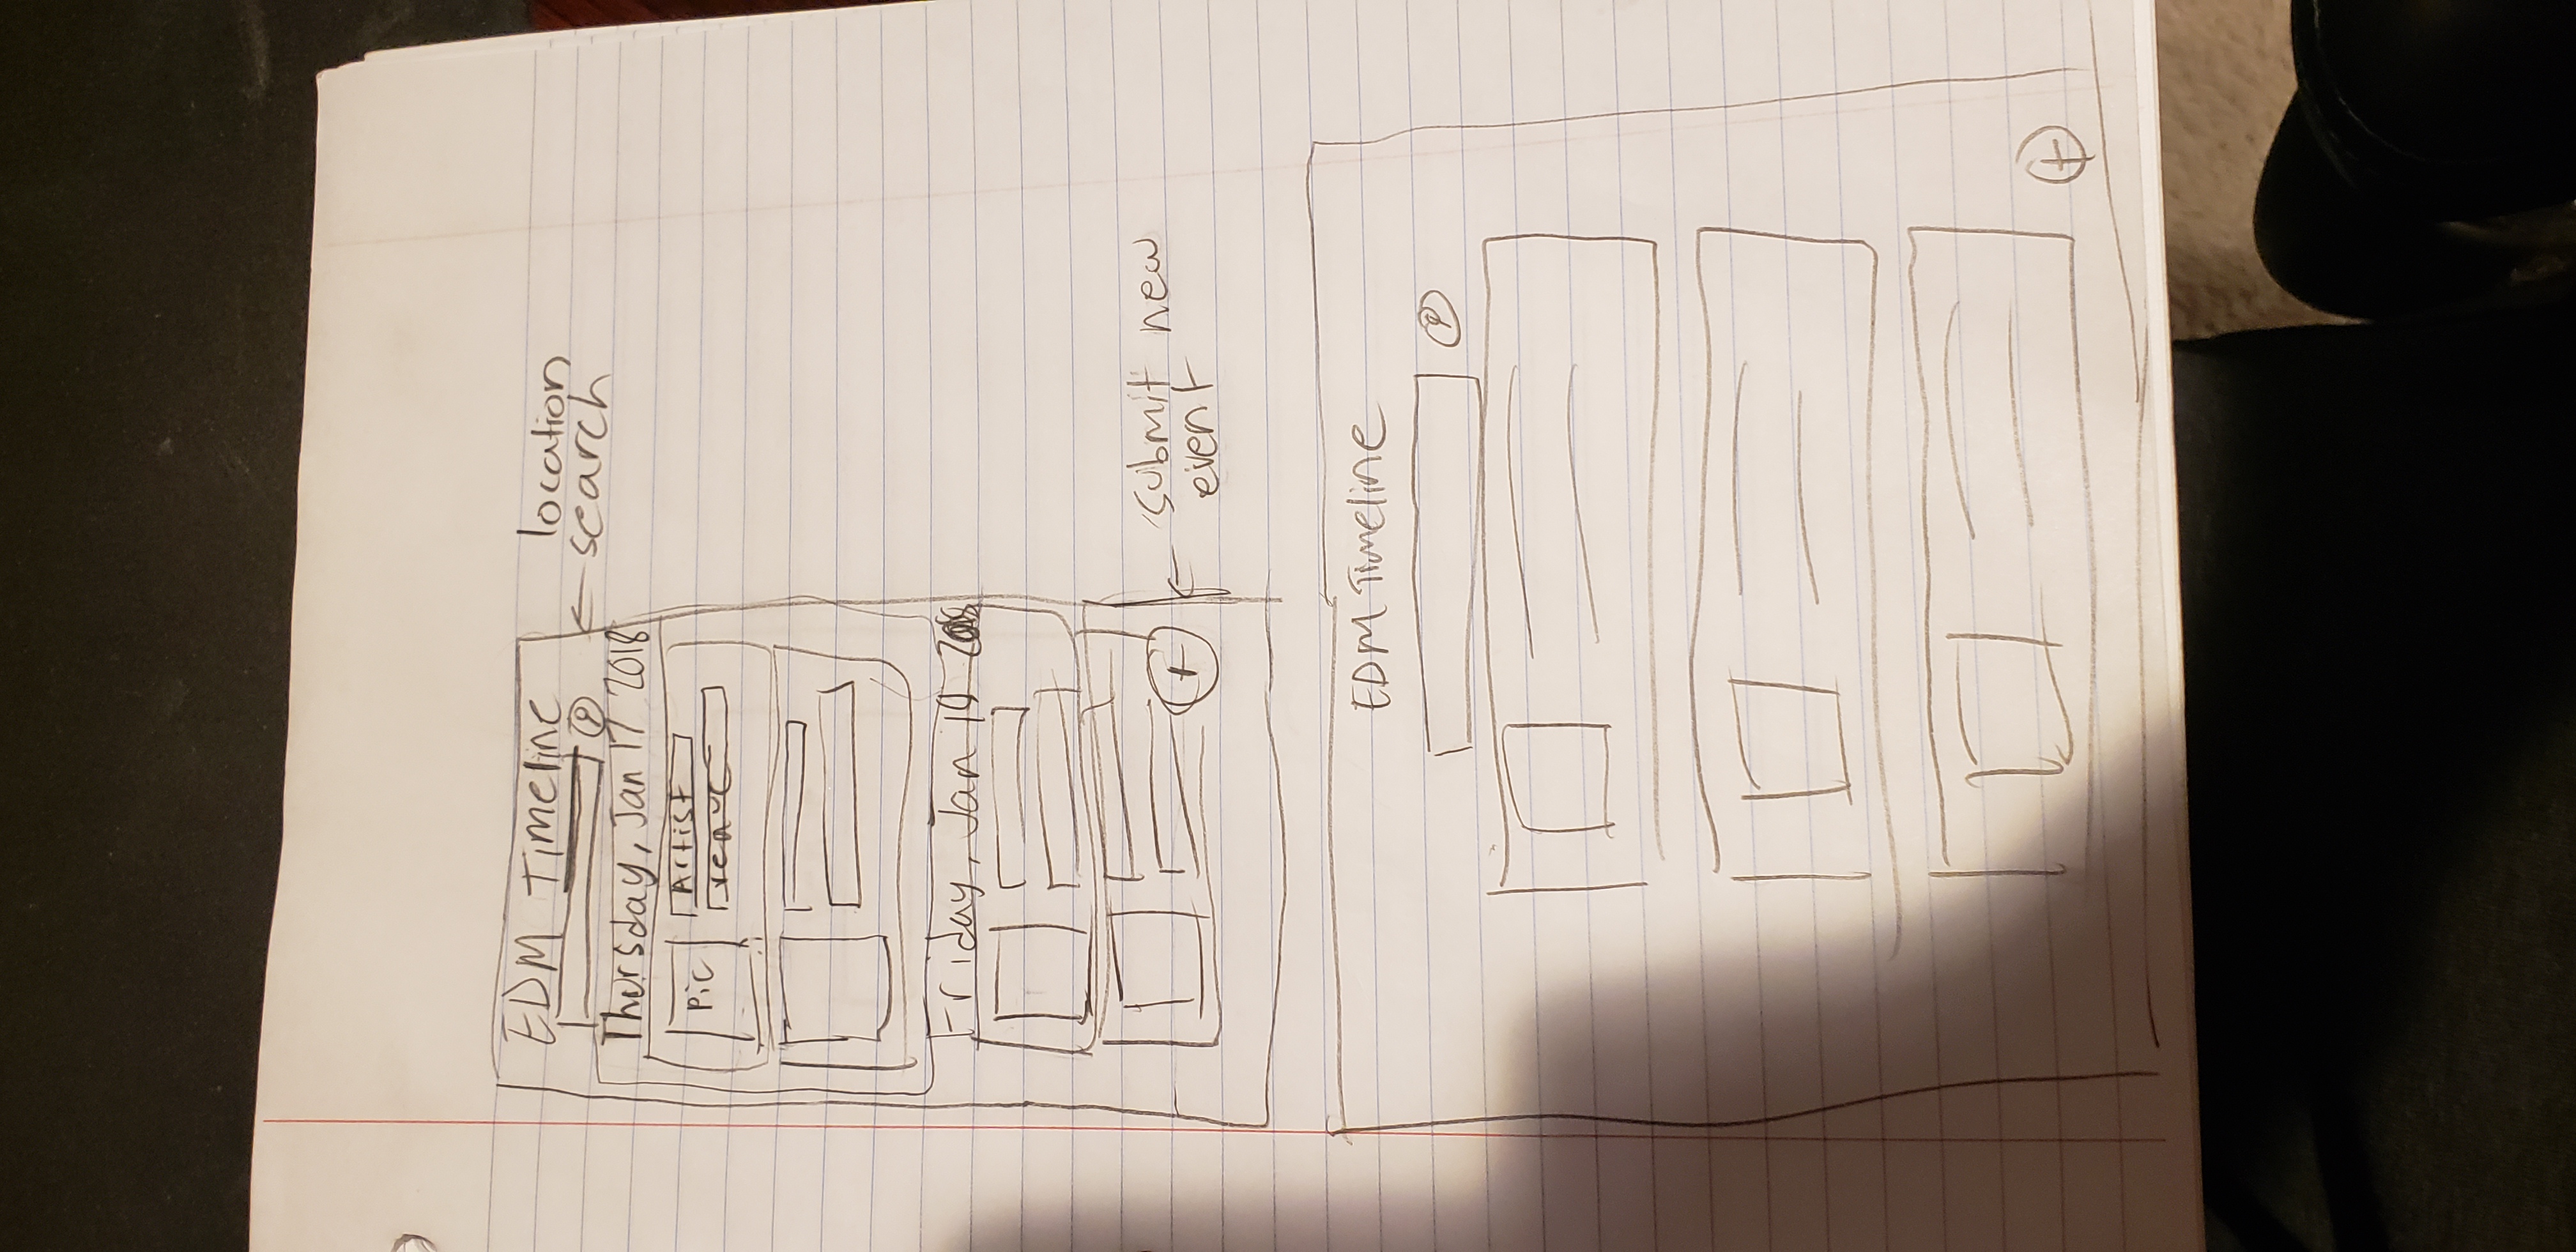 EDM Timeline
location
search
Thursday, Jan 17 2018
Pic
Artist
venue
Friday, Jan 2018
+
submit new
event
EDM Timeline
+